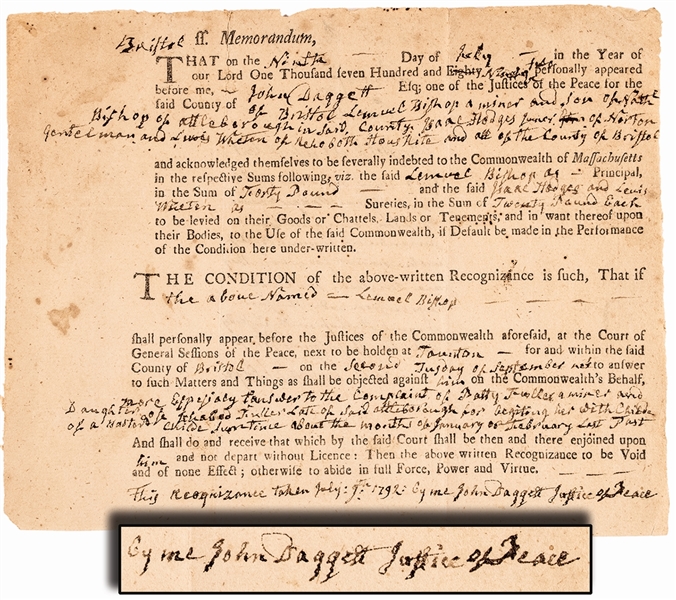 Bristol ss. Memorandum,
THAT on the Ninth Day of July — in the Year of
our Lord One Thousand seven Hundred and Eighty Ninety two personally appeared
before me, — John Daggett Esq; one of the Justices of the Peace for the
said County of of Bristol Lemuel Bishop a miner and son of
Bishop of attleborough in said County Isaac Hodges of Norton
Gentelman and Lewes Wheten of Rehoboth and all of the County of Bristol
and acknowledged themselves to be severally indebted to the Commonwealth of Massachusetts
in the respective Sums following, viz. the said Lemuel Bishop as — Principal,
in the Sum of Forty Pound — and the said Isaac Hodges and Lewis
Wheten as — Sureties, in the Sum of Twenty Pound Each
to be levied on their Goods or Chattels, Lands or Tenements, and in want thereof upon
their Bodies, to the Use of the said Commonwealth, if Default be made in the Performance
of the Condition here under-written.
THE CONDITION of the above-written Recognizance is such, That if
the above Named — Lemuel Bishop
shall personally appear before the Justices of the Commonwealth aforesaid, at the Court of
General Sessions of the Peace, next to be holden at Taunton — for and within the said
County of Bristol — on the Second Tusday of September next to answer
to such Matters and Things as shall be objected against him on the Commonwealth's Behalf,
more Espesialy to answer to the Complaint of Patty Fuller a miner and
Daughter of Fuller Late of said attleborough for begiting her with Childe
of a Bastard Childe sumtime about the month of January or February Last Past
And shall do and receive that which by the said Court shall be then and there enjoined upon
him and not depart without Licence: Then the above written Recognizance to be Void
and of none Effect; otherwise to abide in full Force, Power and Virtue.
This Recognizance taken July: 9th 1792: by me John Daggett Justice of Peace
by me John Daggett Justice of Peace